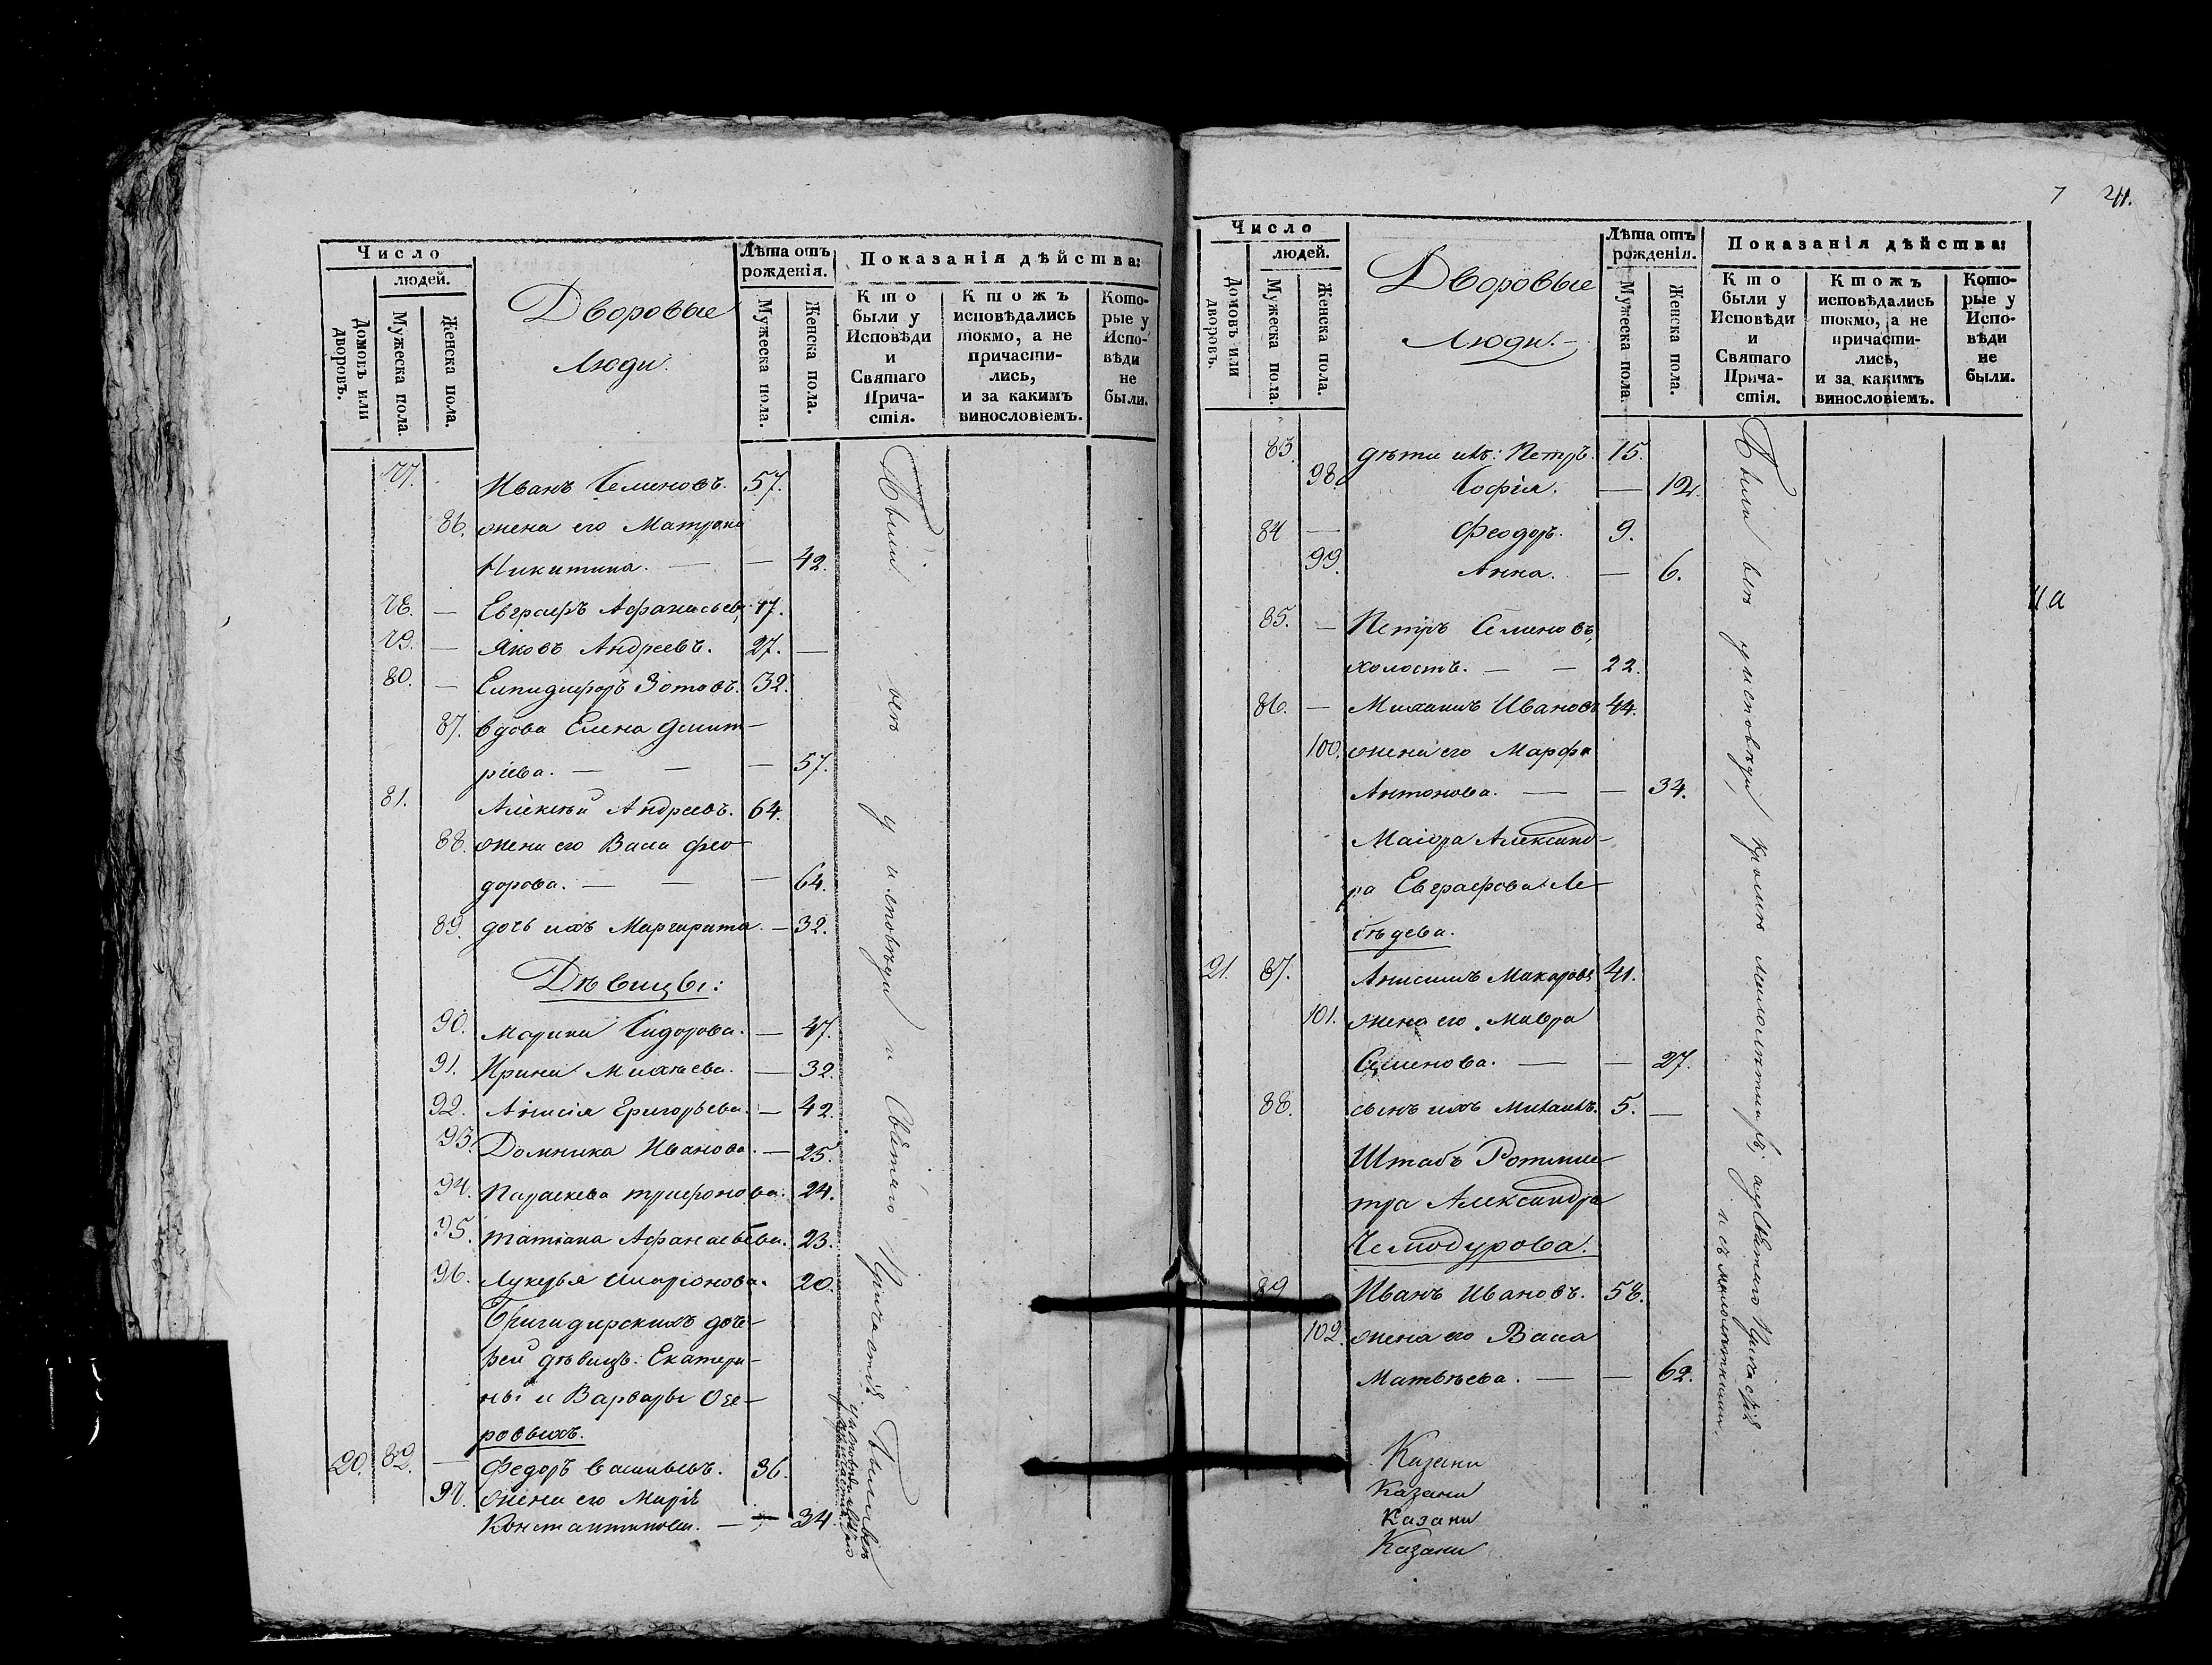 Число
людей.
Домовъ или дворовъ.
Мужеска пола.
Женска пола.
Дворовые
Люди.
Лѣта отъ рожденія.
Мужеска пола.
Женска пола.
Показанія дѣйства:
Кто были у Исповѣди и Святаго Причастія.
Ктожъ исповѣдались токмо, а не причастились, и за какимъ винословіемъ.
Которые у Исповѣди не были.
77. Иванъ Семеновъ. 57.
86. жена его Матрона
Никитина. — — 42.
78. — Евграфъ Афанасьевъ 17.
79. — Яковъ Андреевъ. 27. —
80. — Елпидифоръ Зотовъ. 32.
87. вдова Елена Дмит-
ріева. — — — 57.
81. Алексѣй Андреевъ. 64.
88. жена его Васа Фео-
дорова. — — — 64.
89. дочь ихъ Маргарита. — 32.
Дѣвицы:
90. Марина Сидорова. — 47.
91. Ирина Михаева. — 32.
92. Анисія Григорьева. — 42.
93. Домника Иванова. — 25.
94. Параскева Трифонова. 24.
95. Татіана Афанасьева. 23.
96. Лукерья Иларіонова. 20.
Бригадирскихъ доче-
рей дѣвицъ: Екатери-
ны и Варвары Озе-
ровыхъ.
20. 82. — Федоръ Васильевъ. 36.
97. жена его Марія
Константинова. — — 34.
Были всѣ у исповѣди и Святаго Причастія
Были всѣ
у исповѣди и Святаго
Причастія
7 41.
Число
людей.
Домовъ или дворовъ.
Мужеска пола.
Женска пола.
Дворовые
Люди.
Лѣта отъ рожденія.
Мужеска пола.
Женска пола.
Показанія дѣйства:
Кто были у Исповѣди и Святаго Причастія.
Ктожъ исповѣдались токмо, а не причастились, и за какимъ винословіемъ.
Которые у Исповѣди не были.
83. дѣти ихъ: Петръ. 15.
98. Софія. — 12.
84 — Феодоръ. 9.
99. Анна. — 6.
85. — Петръ Семеновъ,
холостъ. — — 22.
86. — Михаилъ Ивановъ 44.
100. жена его Марфа
Антонова. — — 34.
Маіора Александ-
ра Евграфова Ле-
бѣдева.
21. 87. Анисимъ Макаровъ 41.
101. жена его Мавра
Семенова. — — 27.
88. сынъ ихъ Михаилъ. 5. —
Штабъ Ротмис-
тра Александра
Чемодурова.
89 Иванъ Ивановъ. 58.
102. жена его Васа
Матвѣева. — — 62.
Казани
Казани
Казани
Казани
Были всѣ у исповѣди, кромѣ малолѣтныхъ, а у Святаго Причастія
и съ малолѣтными.